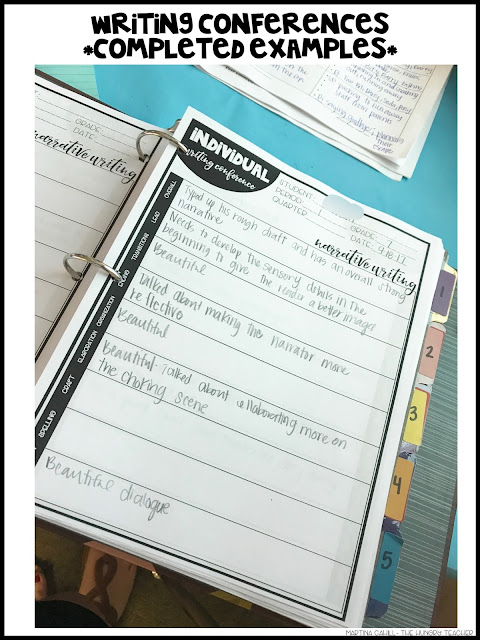 WRITING CONFERENCES
*COMPLETED EXAMPLES*
GRADE:
DATE:
narrative writing
INDIVIDUAL
writing conference
STUDENT:
PERIOD: 1
QUARTER: 1
GRADE: 7
DATE: 9.18.17
narrative writing
OVERALL
Typed up his rough draft and has an overall strong
narrative
LEAD
Needs to develop the sensory details in the
beginning to give the reader a better image
TRANSITIONS
Beautiful
ENDING
Talked about making the narrator more
Reflective
ORGANIZATION
Beautiful
ELABORATION
Beautiful. Talked about elaborating more on
the choking scene
CRAFT
SPELLING
Beautiful dialogue
1
2
3
4
5
MARTINA CAHILL- THE HUNGRY TEACHER